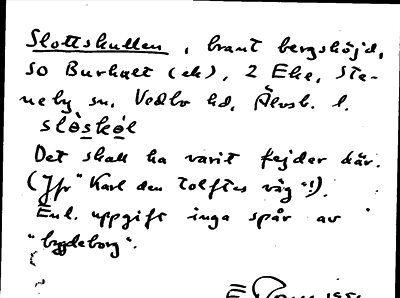 Slottskullen, brant bergshöjd,
SO Burhult (ek), 2 Eke, Ste-
neby sn, Vedbo hd, Älvsb. l.
slòskòl
Det skall ha varit fejder där.
(Jfr "Karl den Tolftes väg"!).
Enl. uppgift inga spår av
"bygdeborg".